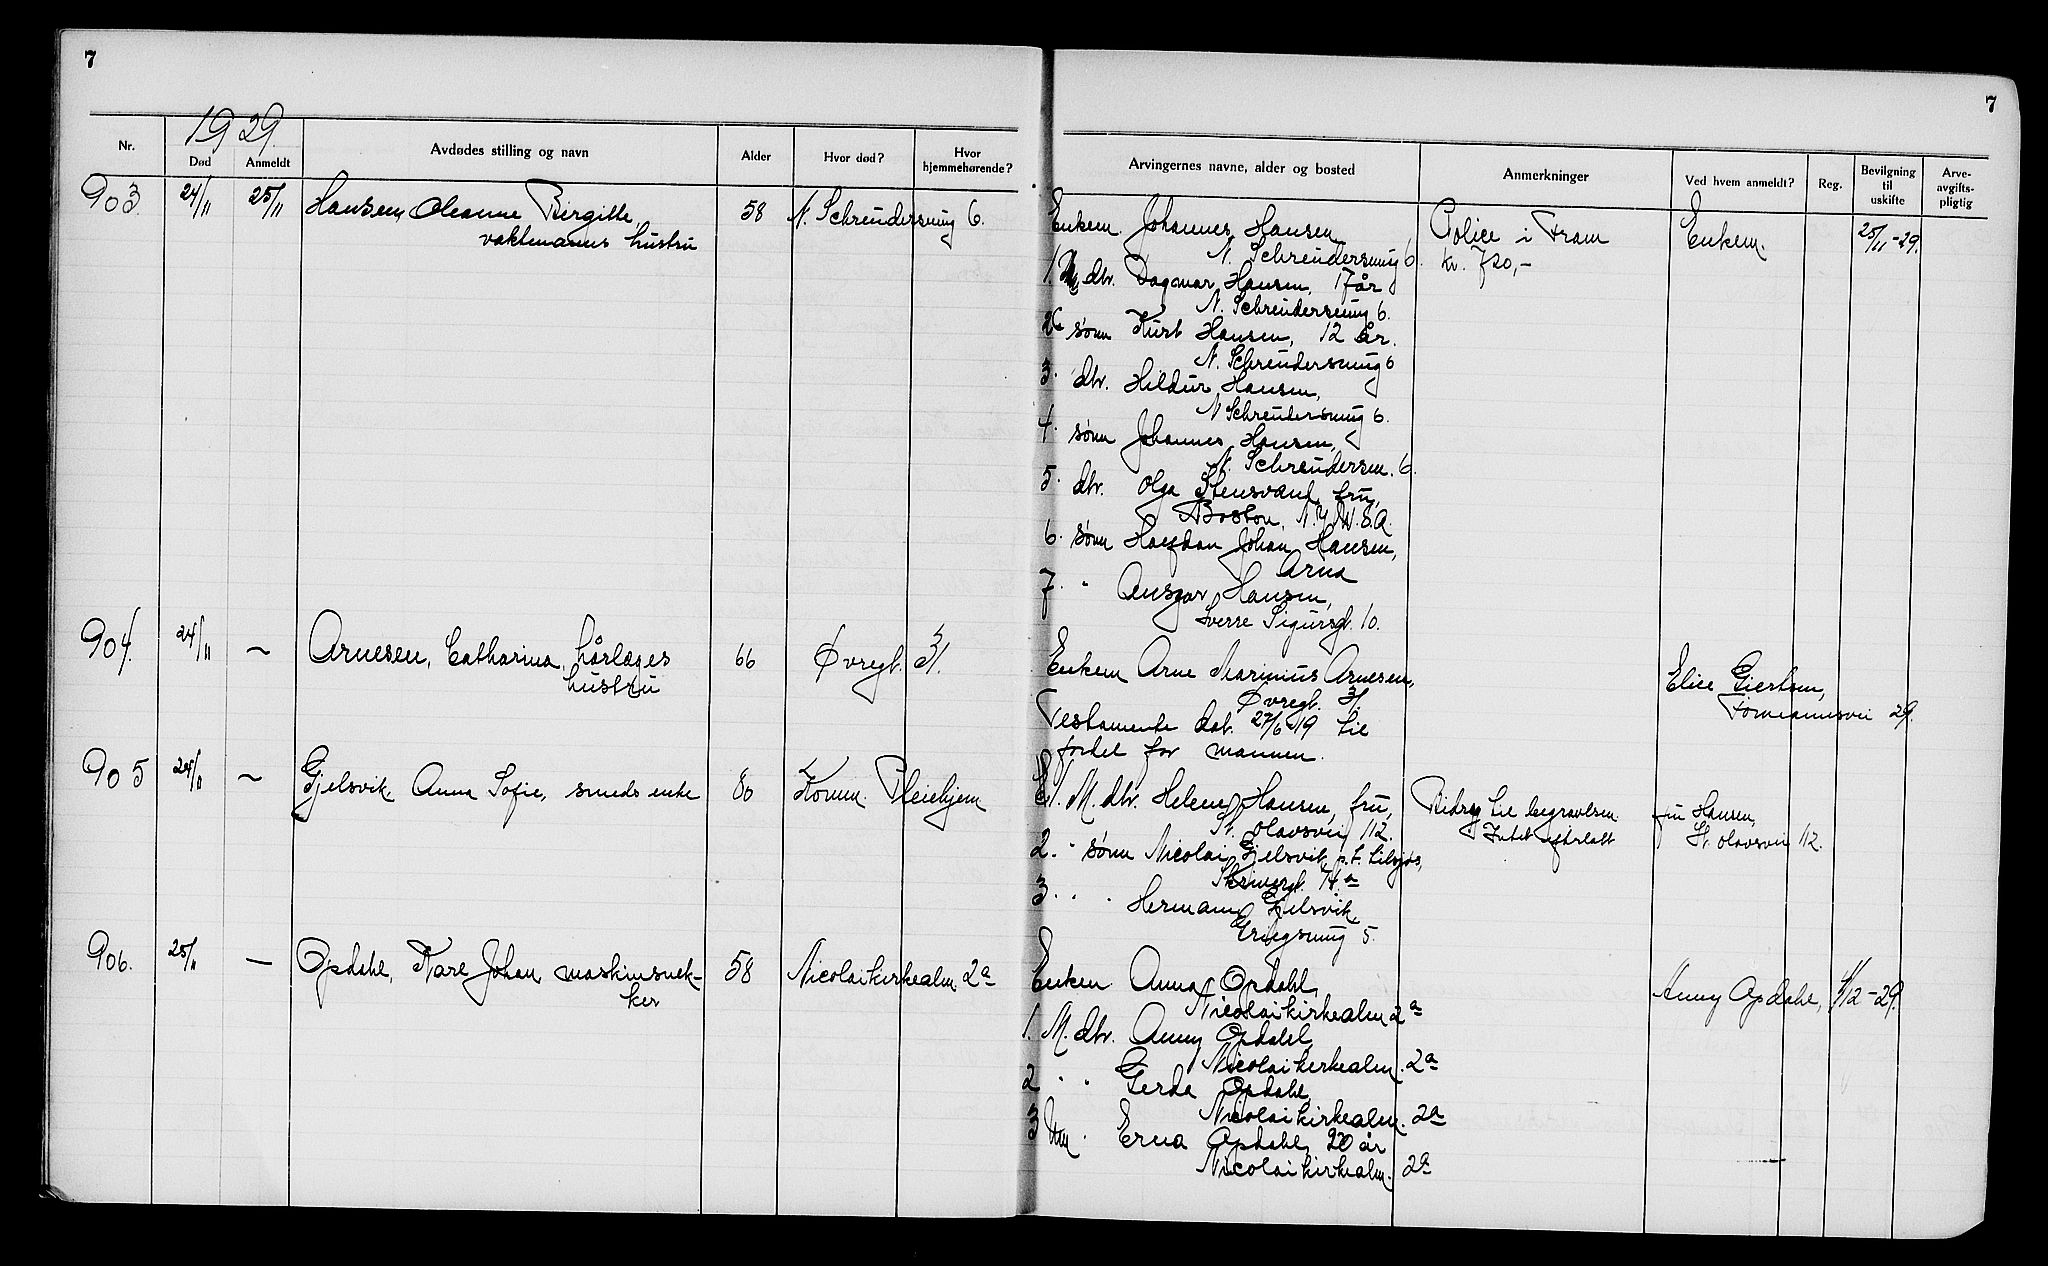 7
7
1929.
Nr.
Død
Anmeldt
Avdødes stilling og navn
Alder
Hvor død?
Hvor hjemmehørende?
Arvingernes navne, alder og bosted
Anmerkninger
Ved hvem anmeldt?
Reg.
Bevilgning til uskifte
Arve-avgifts-pligtig
903. 24/11 25/11 Hansen, Oleanne Birgitte, 58 N. Schreudersmug 6.
vaktmanns hustru
Enkem. Johannes Hansen
N. Schreudersmug 6.
1. dtr. Dagmar Hansen, 17 år
N. Schreudersmug 6.
2. sønn Kurt Hansen, 12 år.
N. Schreudersmug 6
3. dtr. Hildur Hansen,
N. Schreudersmug 6.
4. sønn Johannes Hansen,
N. Schreudersm. 6.
5. dtr. Olga Stensvand, fru,
Boston, N.Y. U.S.A.
6. sønn Halfdan Johan Hansen,
Arna
7. " Ansgar Hansen,
Sverre Sigursgt. 10.
Police i Fram
kr. 720,-
Enkem.
25/11-29.
904. 24/11 — Arnesen, Catharina, hårlæges 66 Øvregt. 31.
hustru
Enkem Arne Marinius Arnesen,
Øvregt. 31.
Testamente dat. 27/6-19 til
fordel for mannen.
Elise Giertsen,
29.
905 24/11 — Gjelsvik Anna Sofie, smeds enke 80 Komm. Pleiehjem
1. M. dtr. Helene Hansen, fru,
St. Olavsvei 112.
2. " sønn Nicolai Gjelsvik, p.t. tilsjøs,
Skrivergt. 74 a
3. " " Hermann Gjelsvik
Griegsmug 5.
Bidrag til begravelsen
Intet efterlatt
fru Hansen,
St. Olavsvei 112.
906. 25/11 — Opdahl, Karl Johan, maskinsnek- 58 Nicolaikirkealm. 2a
ker
Enken Anna Opdahl,
Nicolaikirkealm 2a
1. M. dtr. Anny Opdahl,
Nicolaikirkealm. 2a
2 " " Gerda Opdahl,
Nicolaikirkealm. 2a
3 Um " Erna Opdahl, 20 år
Nicolaikirkealm. 2a
Anny Opdahl, 4/12-29.